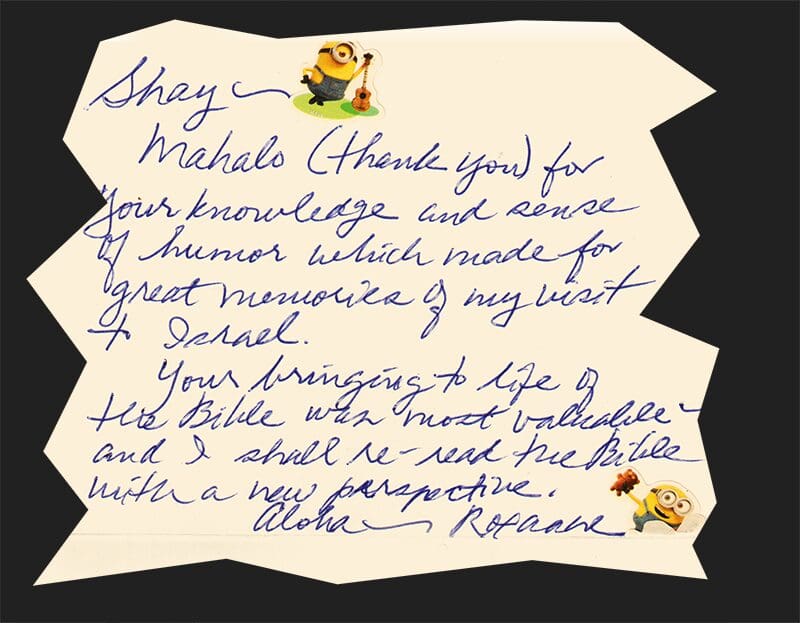 Shay —
Mahalo (thank you) for
your knowledge and sense
of humor which made for
great memories of my visit
to Israel.
Your bringing to life of
the Bible was most valuable –
and I shall re-read the Bible
with a new perspective.
Aloha — Roxanne